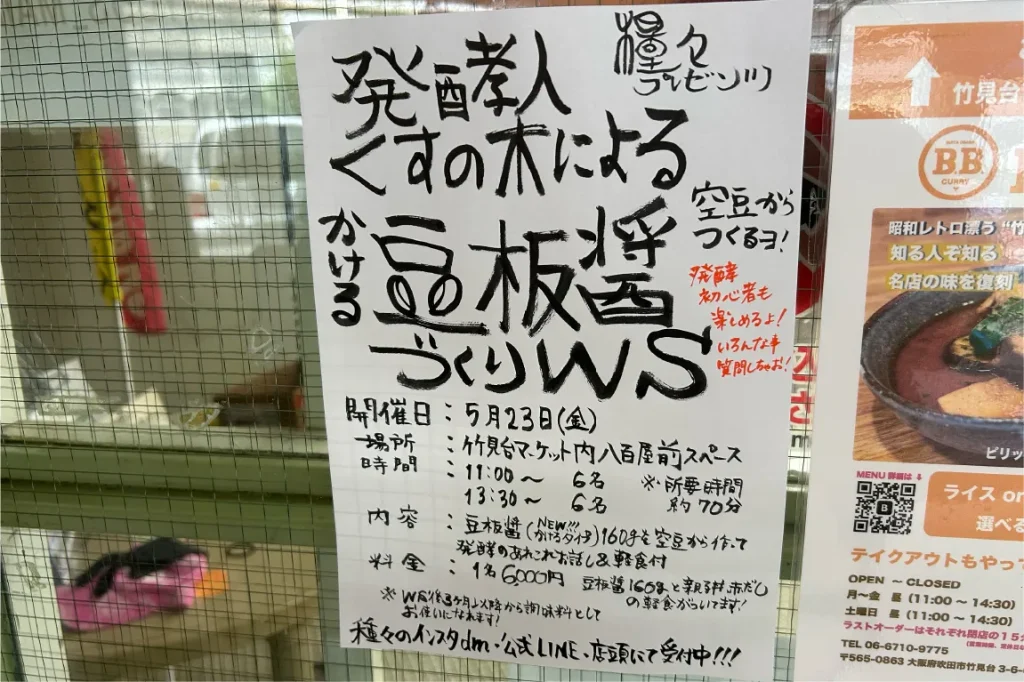 種々
プレゼンツ
発酵孝人
くすの木による
かける
豆板醤
づくりWS
空豆から
つくるヨ!
発酵
初心者も
楽しめるよ!
いろんな事
質問しちゃお!
開催日:5月23日(金)
場所:竹見台マーケット内八百屋前スペース
時間:11:00〜 6名 ※所要時間
13:30〜 6名 約70分
NEW!!!
内容:豆板醤(かけるタイプ)160gを空豆から作って
発酵のあれこれお話し&軽食付
料金:1名6000円 豆板醤160gと親子丼赤だし
の軽食がついてます!
※WS後3ヶ月以降から調味料として
お使いになれます!
種々のインスタdm・公式LINE・店頭にて受付中!!!
竹見台
BB
CURRY
昭和レトロ漂う“竹
知る人ぞ知る
名店の味を復刻
ピリッ
MENU 詳細は
B
ライス or
選べる
テイクアウトもやって
OPEN 〜 CLOSED
月〜金 昼(11:00 〜 14:30)
土曜日 昼(11:00 〜 14:30)
ラストオーダーはそれぞれ閉店の15分
TEL 06-6710-9775
〒565-0863 大阪府吹田市竹見台 3-6-